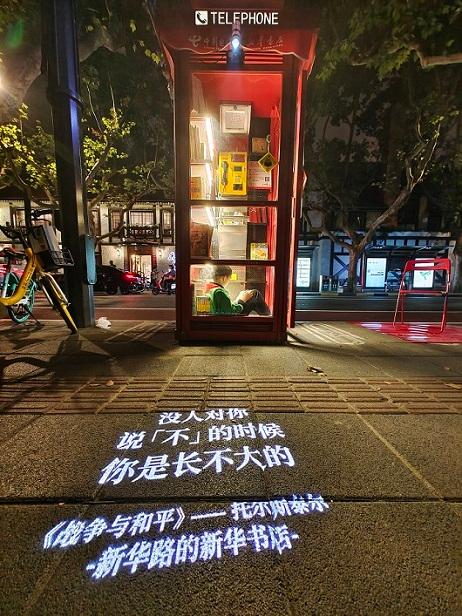 TELEPHONE
没人对你
说「不」的时候
你是长不大的
《战争与和平》—— 托尔斯泰尔
-新华路的新华书店-